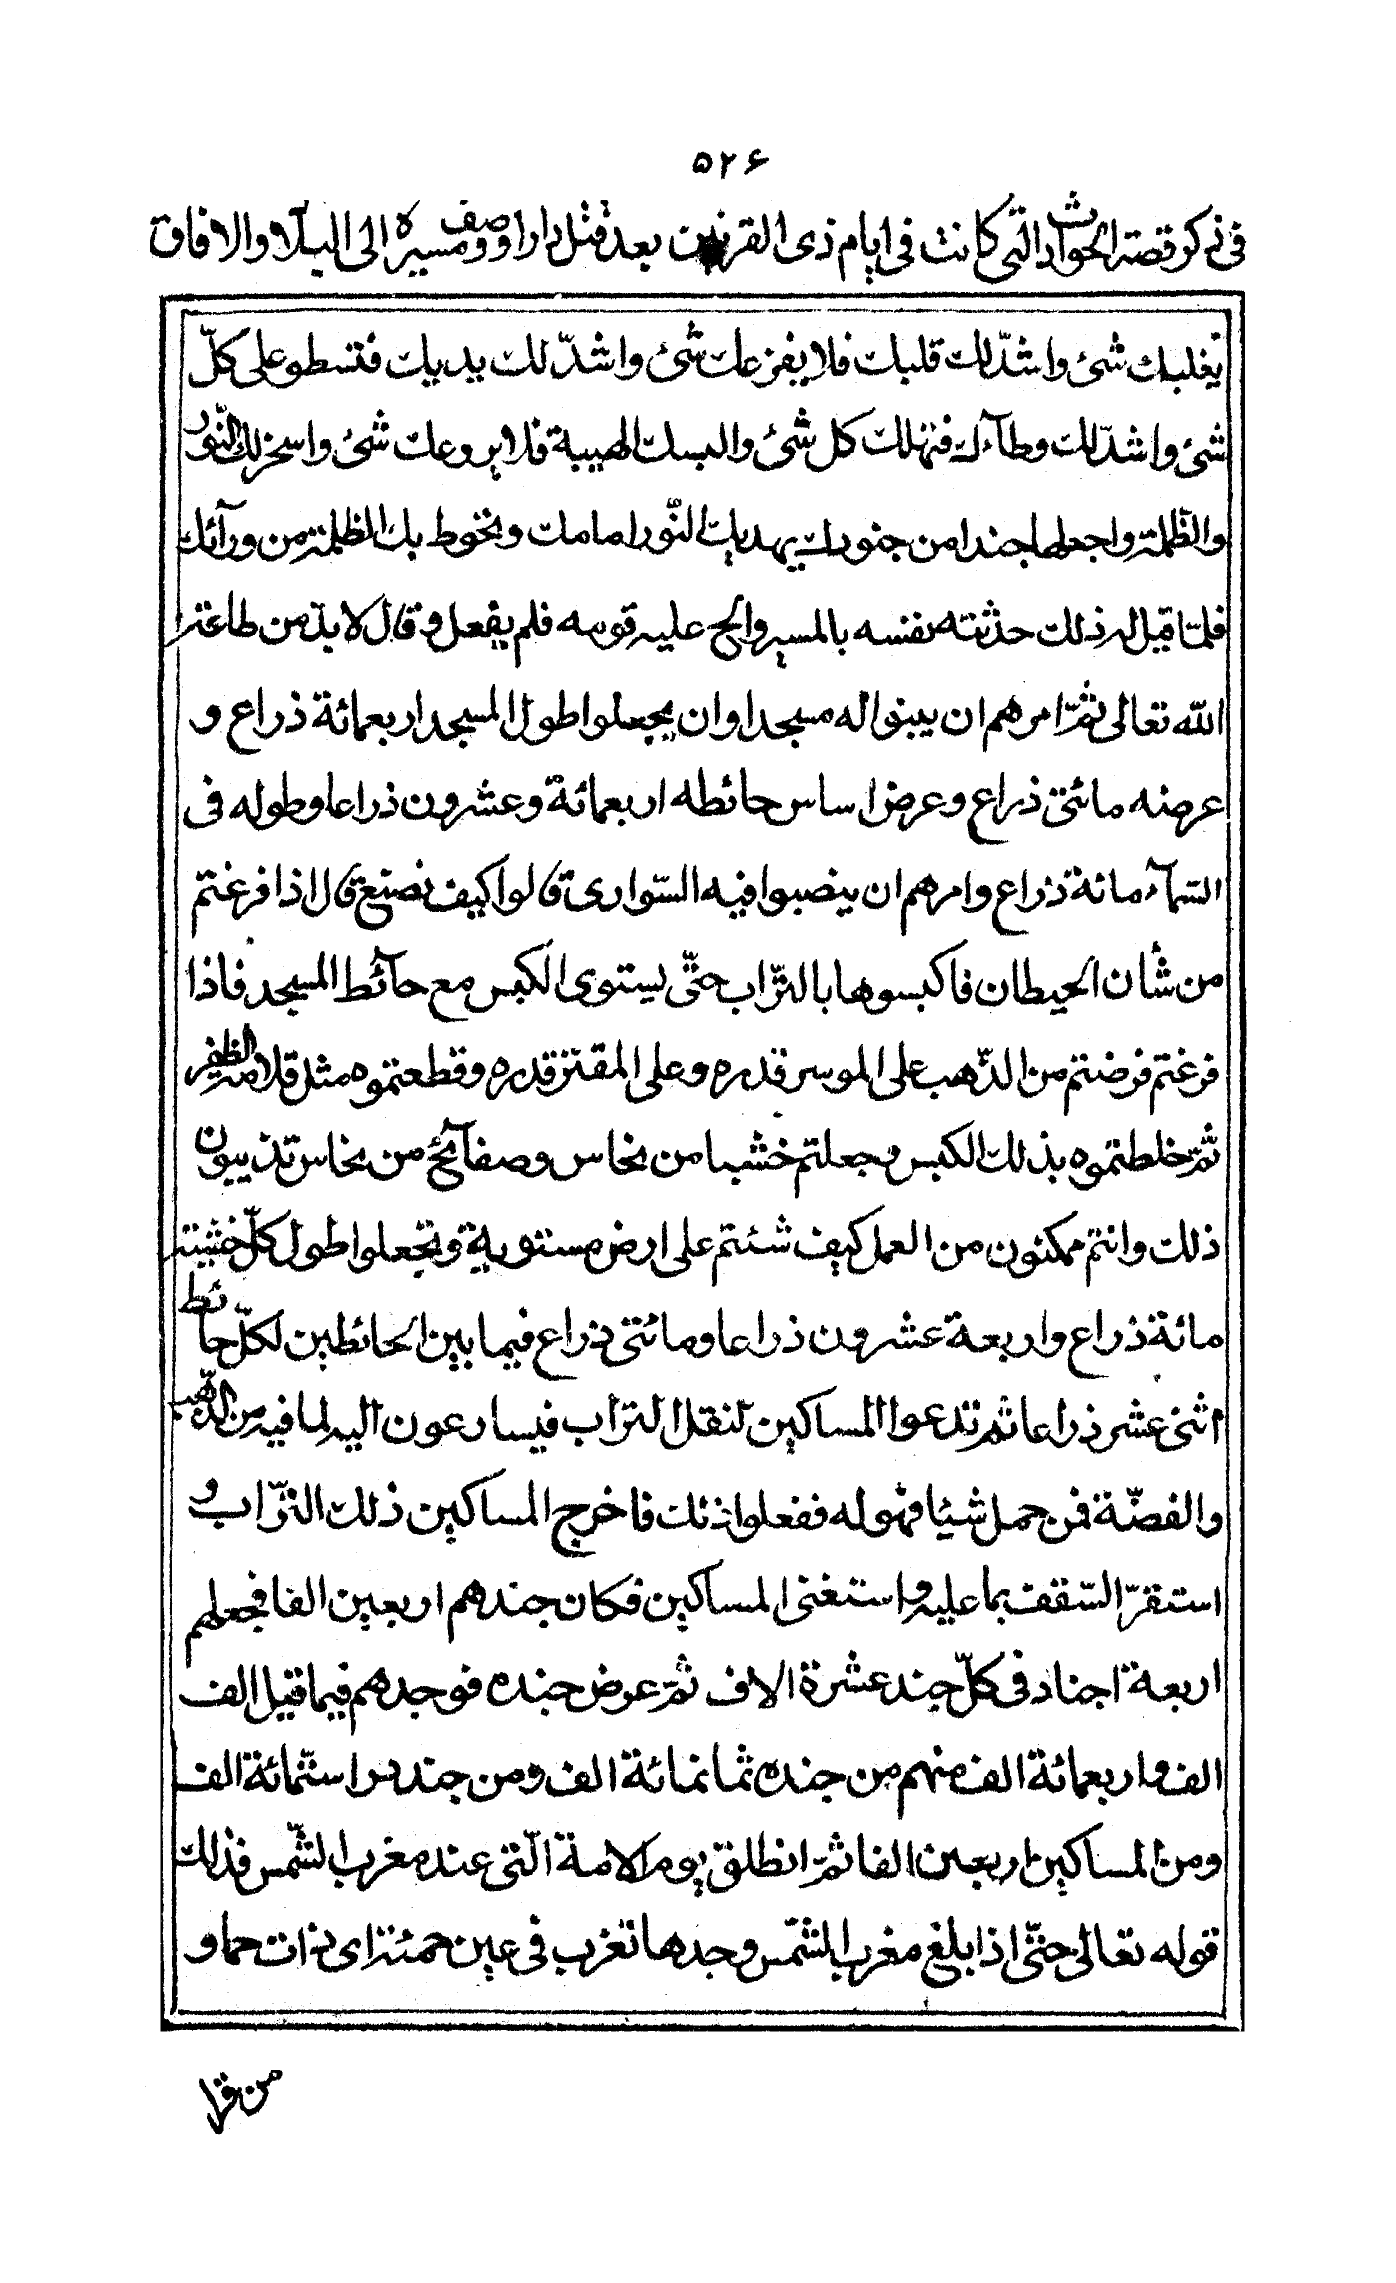 ۵۲۶
فی ذکر قصة الحوادث التی کانت فی ایام ذی القرنین بعد قتل دارا ووصف مسیره الی البلاد والافاق
یغلبك شئ واشدّ لك قلبك فلا یفزعك شئ واشدّ لك یدیك فتسطو علی کلّ
شئ واشدّ لك وطأءك فتهلك کل شئ والبسك الهیبة فلا یروعك شئ واسخر لك النّور
والظّلمة واجعلها جندا من جنودك یهدیك النّور امامك وتحوط بك الظلمة من ورآئك
فلمّا قیل له ذلك حدّثته نفسه بالمسیر والحّ علیه قومه فلم یفعل وقال لابدّ من طاعة
اللّه تعالی ثمّ امرهم ان یبنوا له مسجدا وان یجعلوا طول المسجد اربعمائة ذراع و
عرضه مائتی ذراع وعرض اساس حائطه اربعمائة وعشرون ذراعا وطوله فی
السّمآء مائة ذراع وامرهم ان ینصبوا فیه السّواری قالوا کیف نصنع قال اذا فرغتم
من شأن الحیطان فاکبسوها بالتّراب حتّی یستوی الکبس مع حآئط المسجد فاذا
فرغتم فرضتم من الذّهب علی الموسر قدره وعلی المقتر قدره وقطعتموه مثل قلامة الظفر
ثمّ خلطتموه بذلك الکبس وجعلتم خشبا من نحاس وصفآئح من نحاس تذیبون
ذلك وانتم ممکنون من العمل کیف شئتم علی ارض مستویة وتجعلوا طول کلّ خشبة
مائة ذراع واربعة عشرون ذراعا ومائتی ذراع فیما بین الحائطین لکلّ حائط
اثنی عشر ذراعا ثم تدعوا المساکین لنقل التراب فیسارعون الیه لما فیه من الذّهب
والفضّة فمن حمل شیئا فهو له ففعلوا ذلك فاخرج المساکین ذلك التّراب و
استقرّ السّقف بما علیه واستغنی المساکین فکان جندهم اربعین الفا فجعلهم
اربعة اجناد فی کلّ جند عشرة الاف ثمّ عرض جنده فوجدهم فیما قیل الف
الف واربعمائة الف منهم من جنده ثمانمائة الف ومن جند دارا ستّمائة الف
ومن المساکین اربعین الفا ثمّ انطلق یوم الامة الّتی عند مغرب الشّمس فذلك
قوله تعالی حتّی اذا بلغ مغرب الشّمس وجدها تغرب فی عین حمئة ای ذات حما و
من قرأ